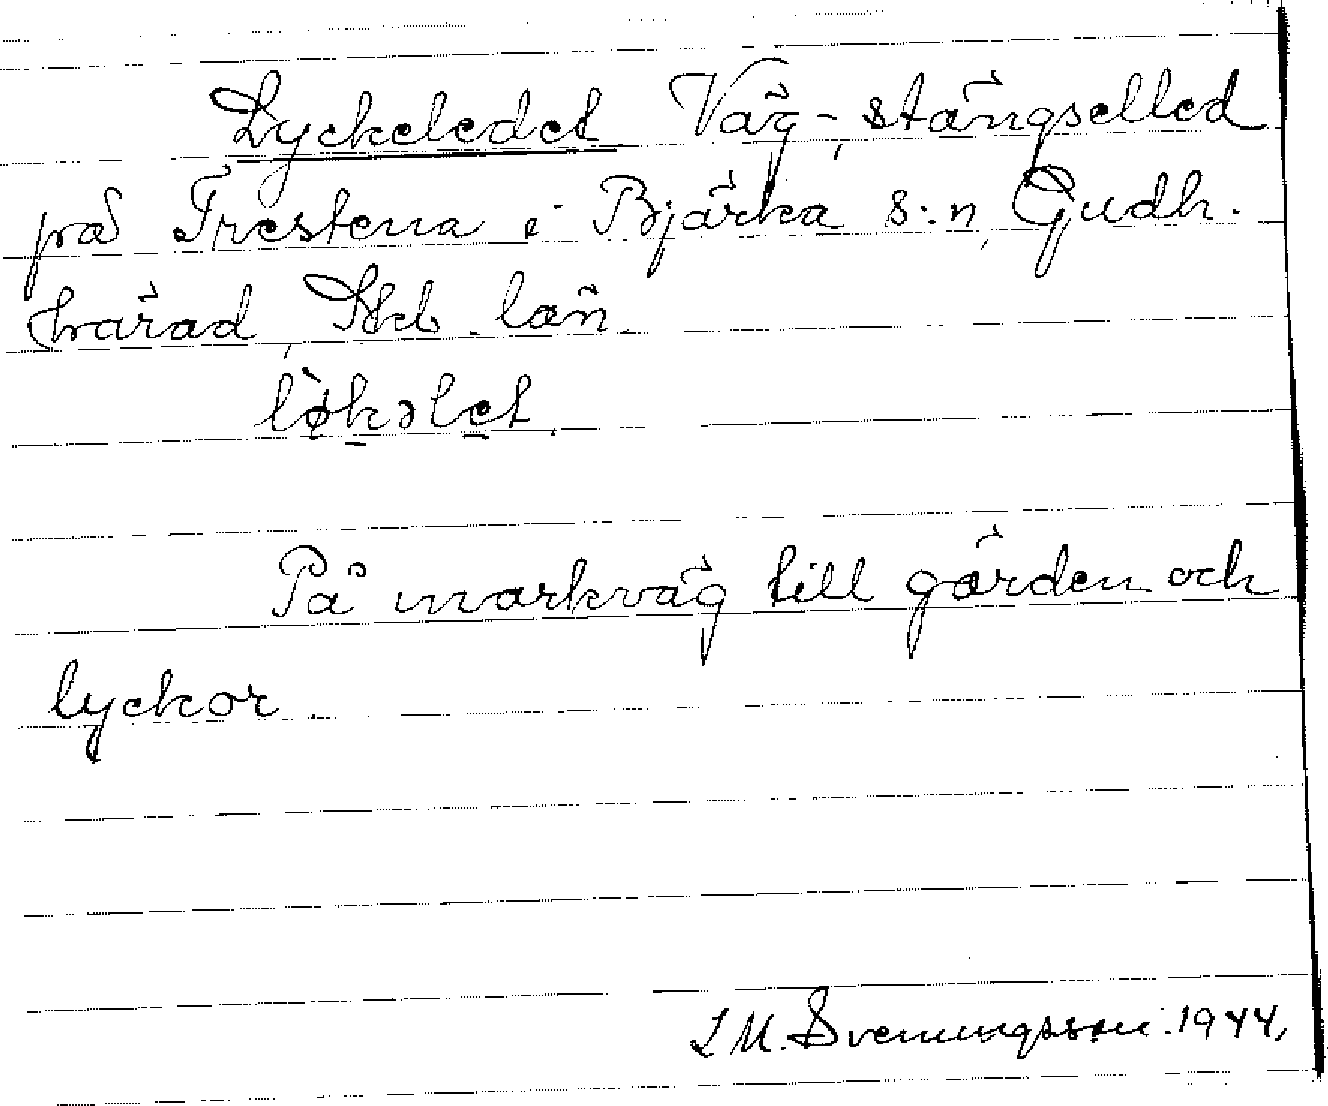 Lyckeledet Väg-, stängselled
på Trestena i Bjärka s:n, Gudh.
härad, Skb. län.
lø̀kəlet.
På markväg till gärden och
lyckor
L M. Svenungsson. 1944,